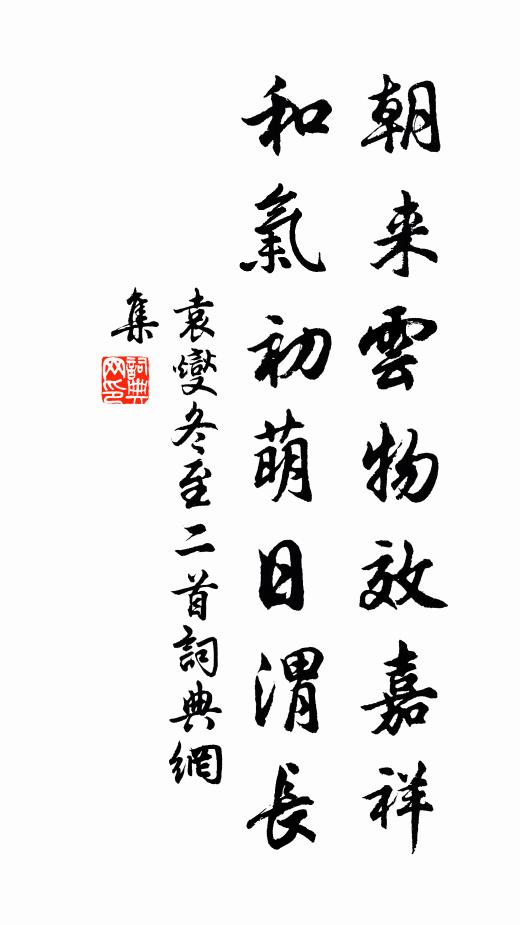 朝来雲物效嘉祥
和氣初萌日渭長
袁燮冬至二首詞典網
集
詞典
网印